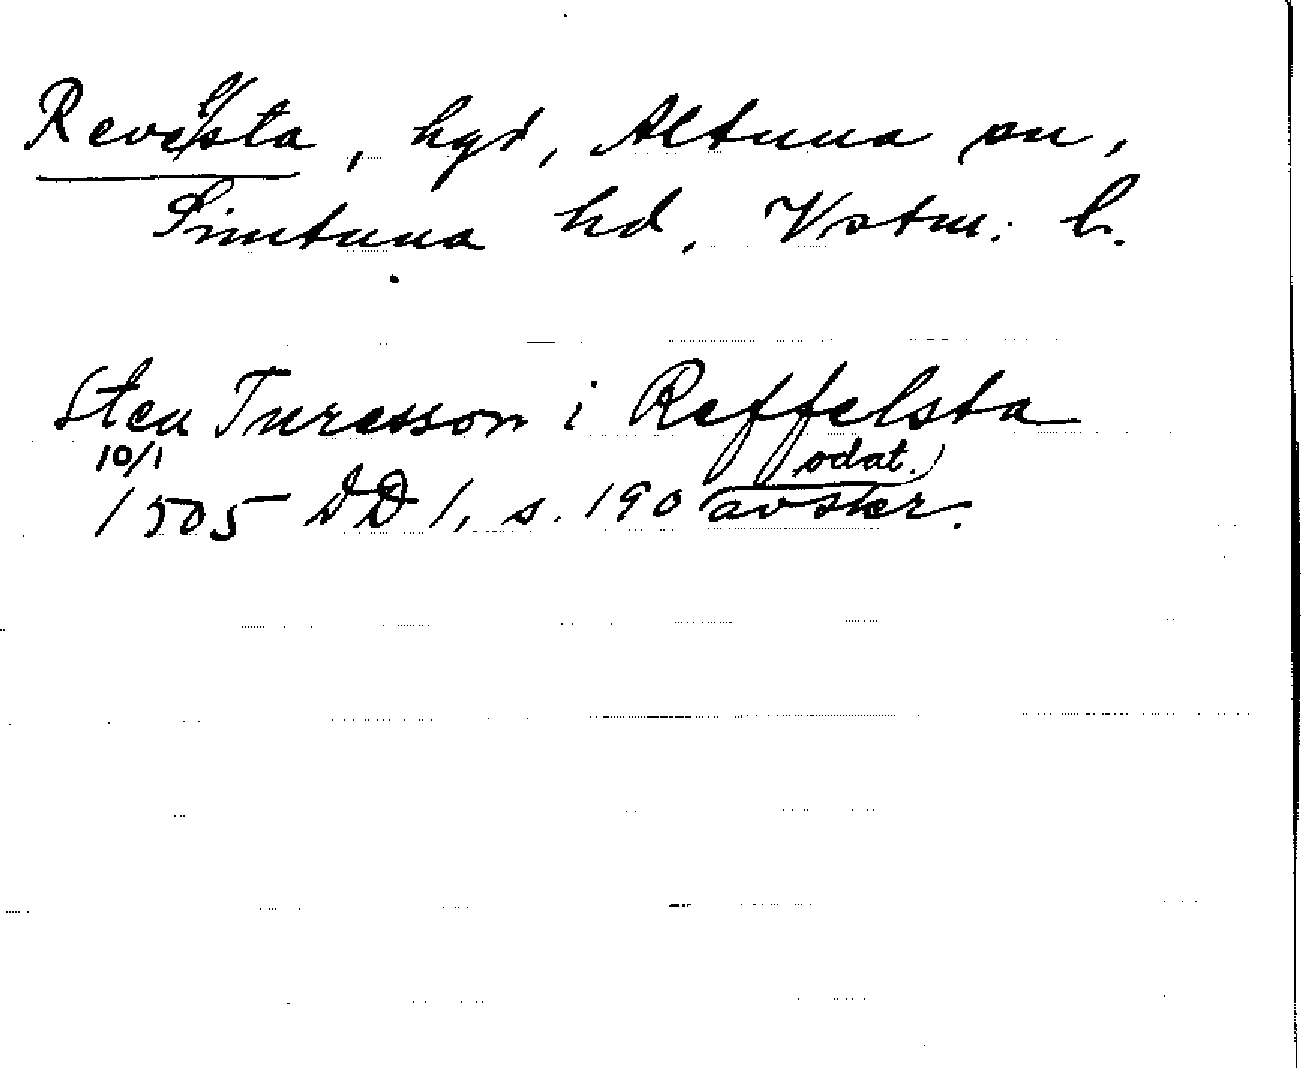 Revelsta, hgd, Altuna sn,
Simtuna hd, Vstm. l.
Sten Turesson i Reffelsta
10/1 odat.
1505 DD 1, s. 190 avskr.